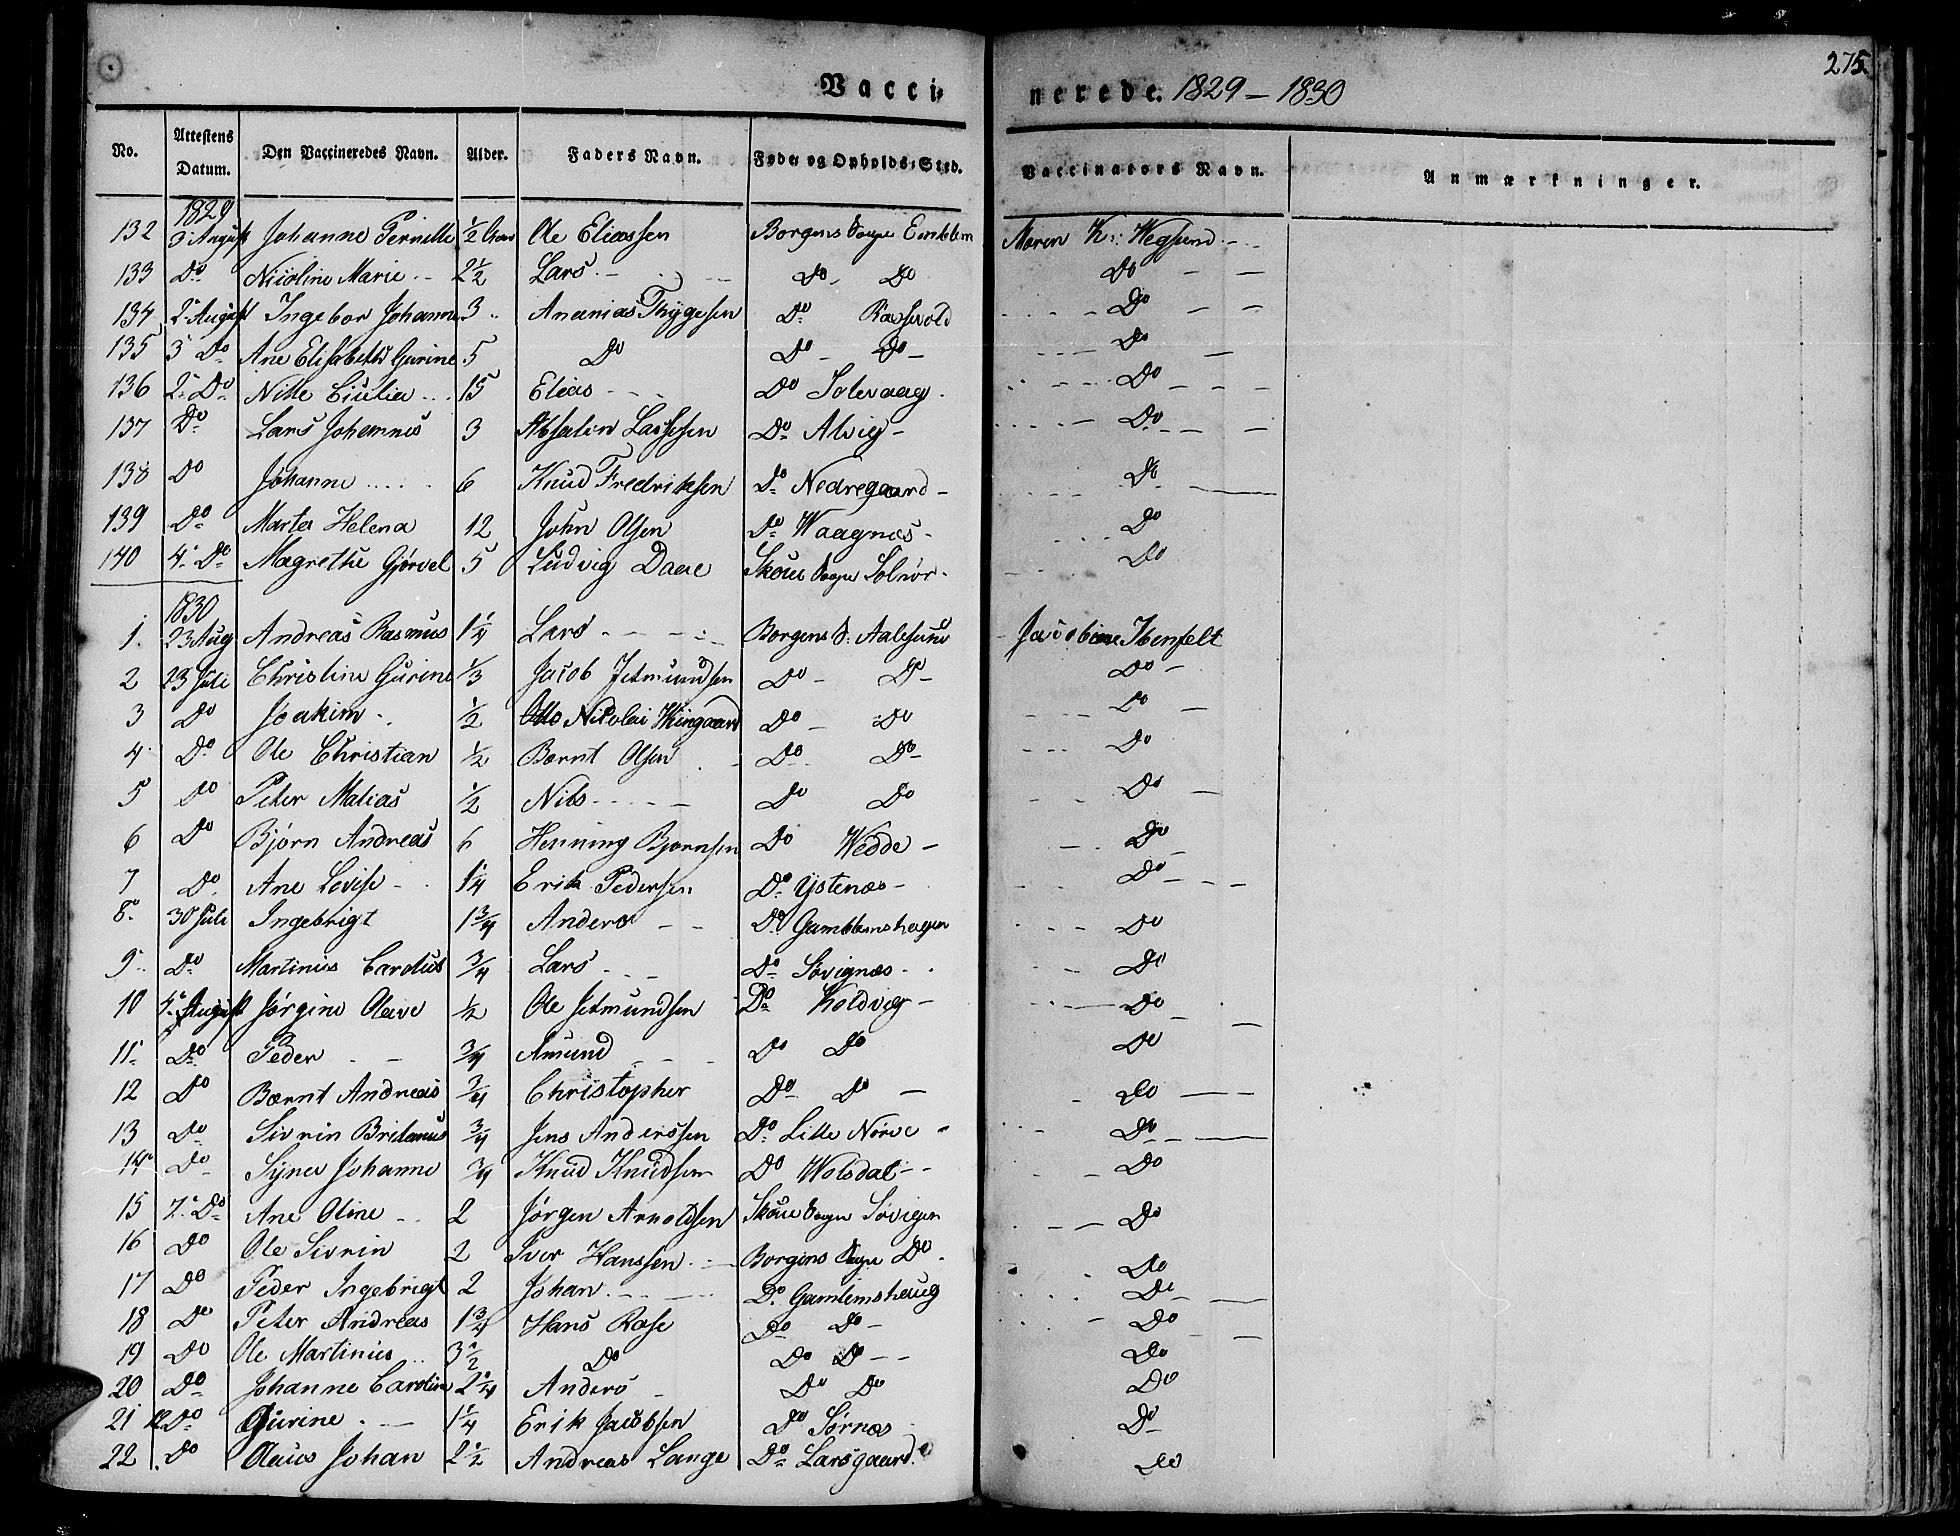 275.
Vacci- nerede. 1829 - 1830
No. Attestens Datum. Den Vaccineredes Navn. Alder. Faders Navn. Føde- og Opholds-Sted. Vaccinators Navn. Anmærkninger.
1829
132 3 August Johanne Pernille 1/2 Aar Ole Eliassen Borgens Sogn Emblem Maren K. Hegsund
133 Do Nicoline Marie 2 1/2 Lars Do Do Do
134 2 August Ingebor Johanne 3 Ananias Thygesen Do Do
135 3 Do Ane Elisabeth Gurine 5 Do Do Do Do
136 2 Do Nille Liulia 15 Elias Do Solevaag Do
137 Do Lars Johannes 3 Absalon Lassesen Do Alvig Do
138 Do Johanne 6 Knud Fredriksen Do Nedregaard Do
139 Do Marta Helena 12 John Olsen Do Waagnæs Do
140 4 Do Magrethe Gjørvel 5 Ludvig Daae Skoue Sogn Solnør Do
1830
1. 23 Aug Andreas Rasmus 1 1/4 Lars Borgens S. Aalesund Jacobine Ibenfelt
2 23 Juli Christine Gurine 1/3 Jacob Jetmundsen Do Do Do
3 Do Joakim 1/2 Otto Nicolai Do Do Do
4 Do Ole Christian 1/2 Bærnt Olsen Do Do Do
5 Do Peter Matias 1/2 Nils Do Do Do
6 Do Bjørn Andreas 6 Henning Bjørnsen Do Wedde Do
7 Do Ane Lovise 1 1/4 Erik Pedersen Do Ystenæs Do
8. 30 Juli Ingebrigt 1 3/4 Anders Do Gamblemshagen Do
9. Do Martinus Carolus 3/4 Lars Do Søvignæs Do
10 4 August Jørgine Olave 1/2 Ole Jetmundsen Do Koldvig Do
11 Do Peder 3/4 Amund Do Do Do
12 Do Bærnt Andreas 3/4 Christopher Do Do Do
13 Do Sivrin Britanus 3/4 Jens Anderssen Do Lille Nørve Do
14 Do Syner Johanne 3/4 Knud Knudsen Do Wolsdal Do
15 7 Do Ane Oline 2 Jørgen Arnoldsen Skoue Sogn Søvigen Do
16 Do Ole Sivrin 2 Iver Hanssen Borgens Sogn Do Do
17 Do Peder Ingebrigt 2 Johan Do Gamlemshaug Do
18 Do Peter Andreas 1 3/4 Hans Rase Do Do Do
19 Do Ole Martinus 3 1/2 Do Do Do Do
20 Do Johanne Caroline 2 1/4 Anders Do Do Do
21 Do Gurine 1 1/4 Erik Jacobsen Do Sørnæs Do
22 Do Claus Johan 2 1/2 Andreas Lange Do Larsgaard Do